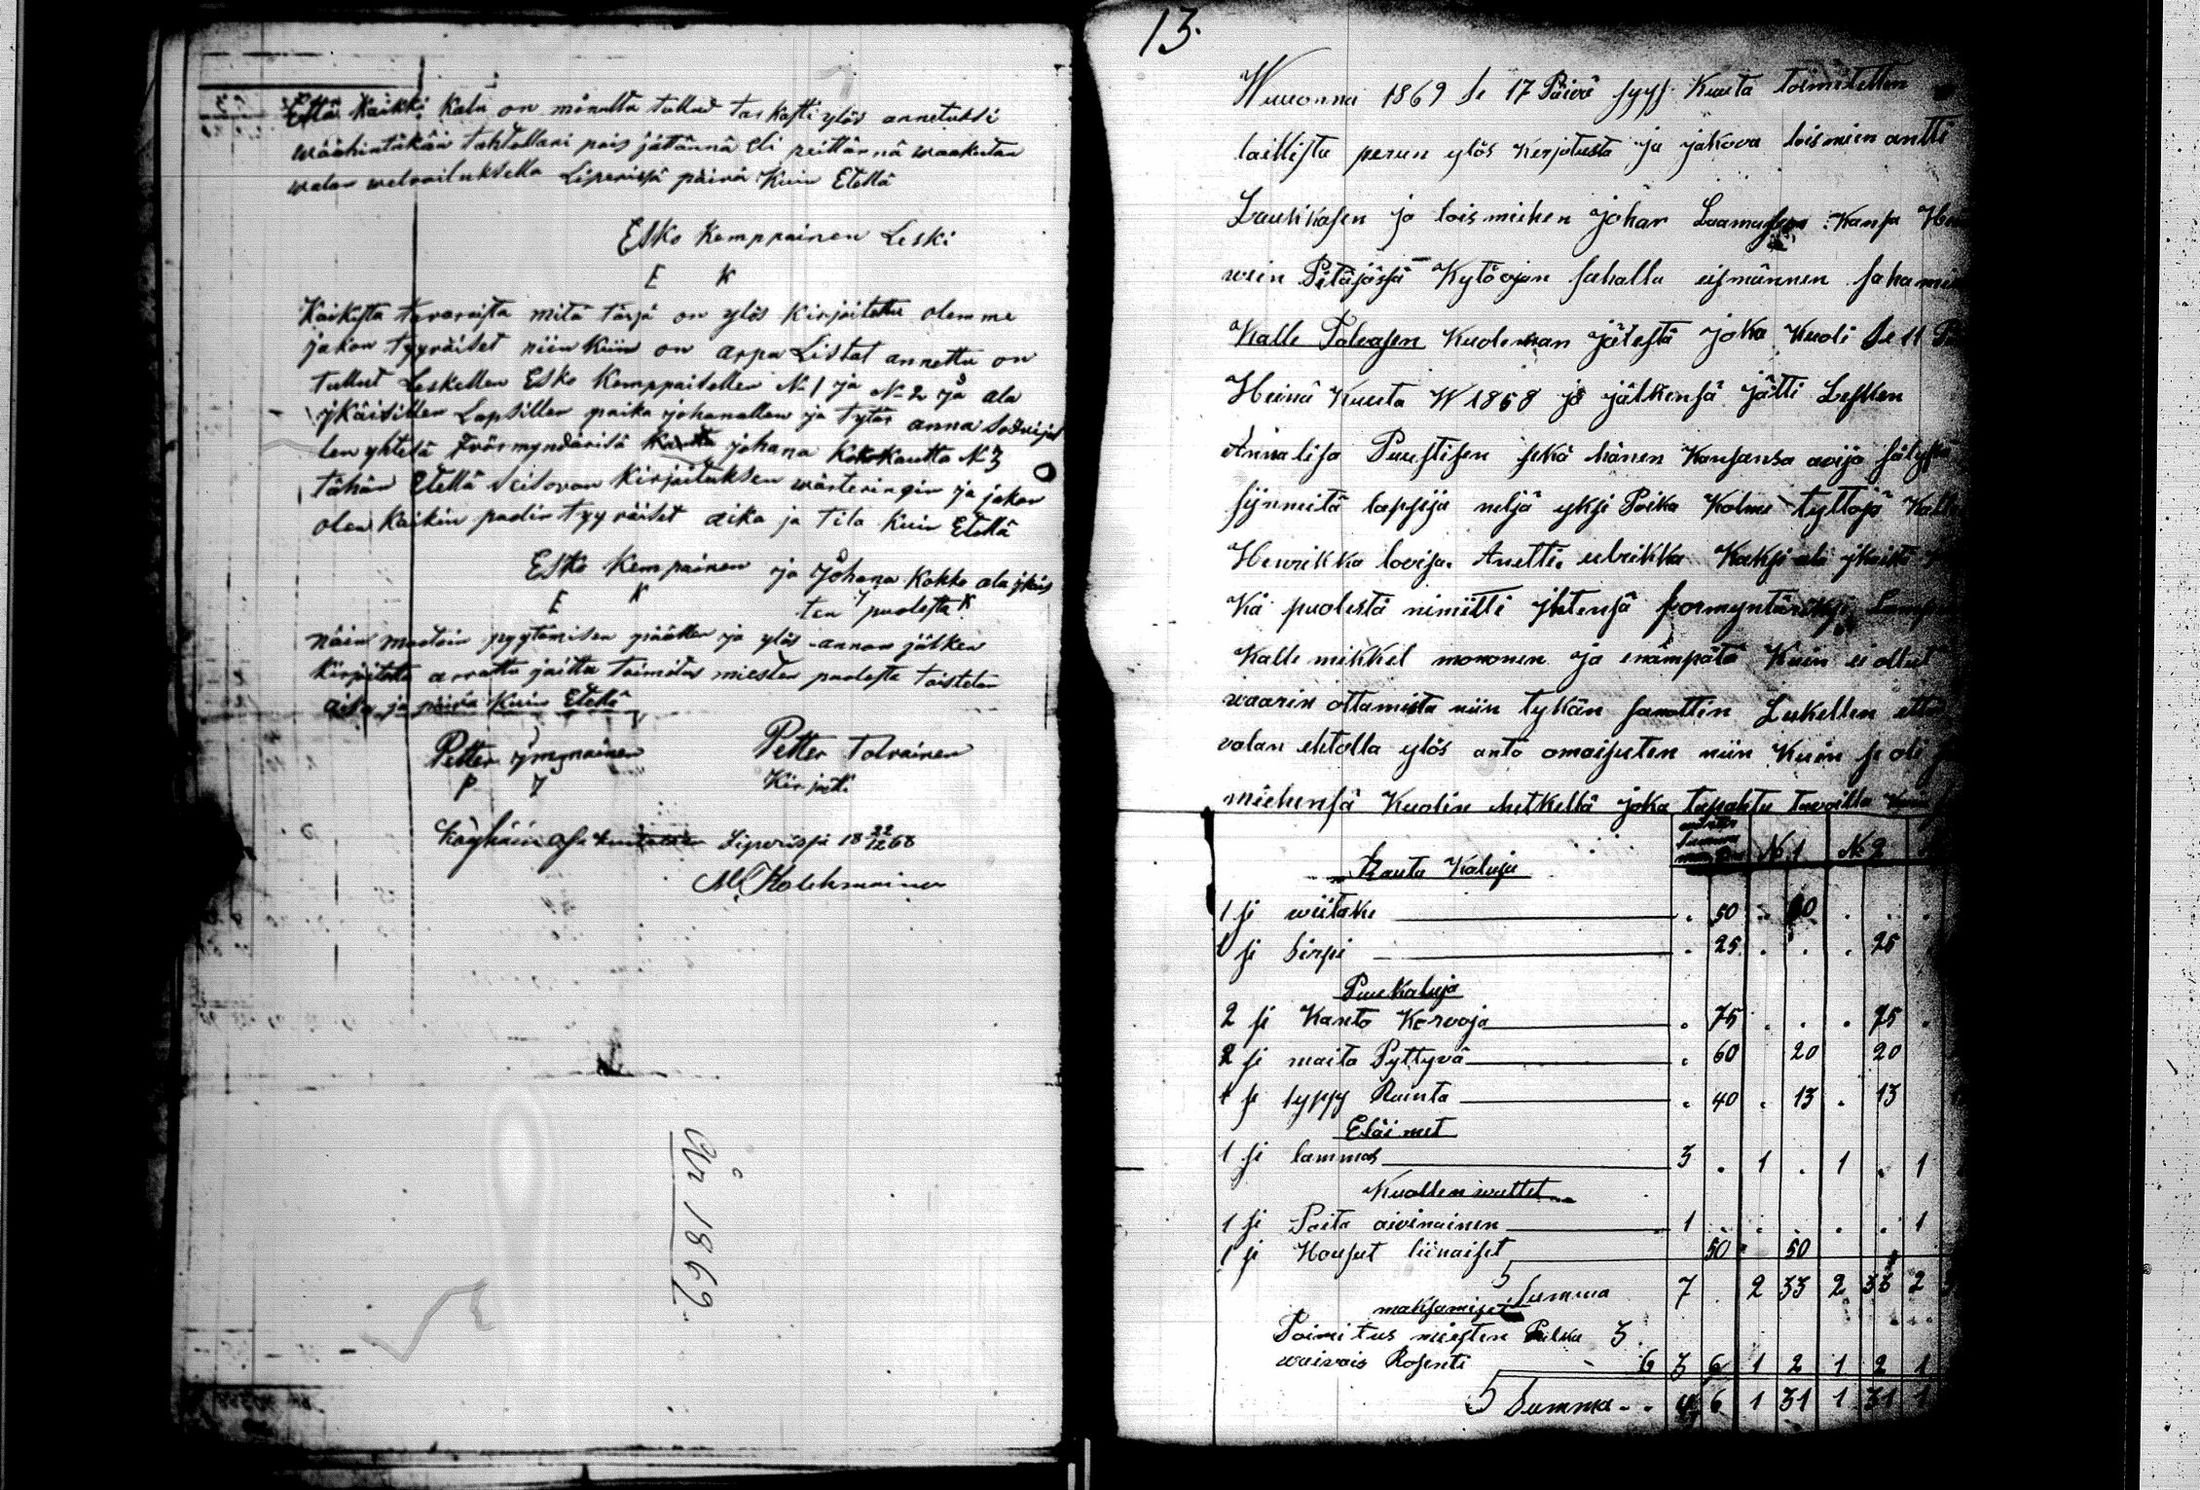 Että kaikki kalu on minulta tullud tarkasti ylös annetuksi
wäähintäkään tahtollani pois jätännä eli peittännä waakutan
walan welvoituksella Liperissä päivä kuin Etellä
Esko Kemppainen Leski
E K
Kaikista tavaroista mitä täsä on ylös kirjoitettu olemme
jakon tyyväiset niin kuin on arpa Listat annettu on
tullut Leskellen Esko Kemppaisellen N 1 ja N 2 ja ala
ykäisillen Lapsillen poika johanallen ja tytär anna
len yhteisä johana Kokkautta N 3
tähän Etellä Seisovan kirjoituksen wärteringin ja jakon
olen kaikin puolin tyyväiset aika ja tila kuin Etellä
Esko Kempainen ja Johana Kokko ala ykäis
E K ten puolesta K
näin muotoin pyytämisen päällen ja ylös annon jälken
kirjoitettu arvattu jaittu toimitus miesten puolesta toistetan
aika ja päivä kuin Etellä
Petter ymmnainen Petter Tolvainen
P Y Kirjoitti
Liperissä 18 22/12 68
M. Kolehmainen
År 1869.
13.
Wuuonna 1869 se 17 Päivä syys Kuuta toimitettin
laillista perun ylös kerjotusta ja jakova loismien antti
Laukkasen ja loismiehen johan kansa
wein Pitäjässä Kytöojan sahalla eismännen saha
Kalle Tolvasen Kuoleman jälestä joka kuoli se 11
Heinä Kuuta W 1868 ja jälkensä jätti Lesken
Annalisa Puustisen sekä hänen Kansansa avijo
synneitä lapsija neljä yksi Poika Kolme tyttöjä
Henrikka lovisa. Anetti. ulrikka Kaksi ala ykäistä
Kä puolesta nimitti yhtensä formyntäriksi
Kalle mikkel mononen ja enämpätä Kuin ei ollut
waarin ottamista niin tykän sanottin Leskellen että
valan ehtolla ylös anto omaisuten niin Kuin se oli
miehensä Kuolin hetkellä joka tapahtu tavalla
N 1 N 2
Rauta Kaluja
1 si wiitake . 50 . 50 . . .
1 si Sirpi . 25 . . . 25
Puukaluja
2 si Kanto Korvoja . 75 . . . 75 .
2 si maito Pyttyvä . 60 20 20
1 si lypsy Rainta . 40 . 13 . 13
Eläimet
1 si lammas 3 . 1 . 1 . 1
Kuollen wattet
1 si Paita aivinainen 1 . . . . . 1
1 si Housut liinaiset 50 50
Summa 7 2 33 2 33 2
maksamiset
Toimitus miesten Palka 3
waivais Rosenti 6 3 6 1 2 1 2 1
Summa . . 6 1 31 1 31 1